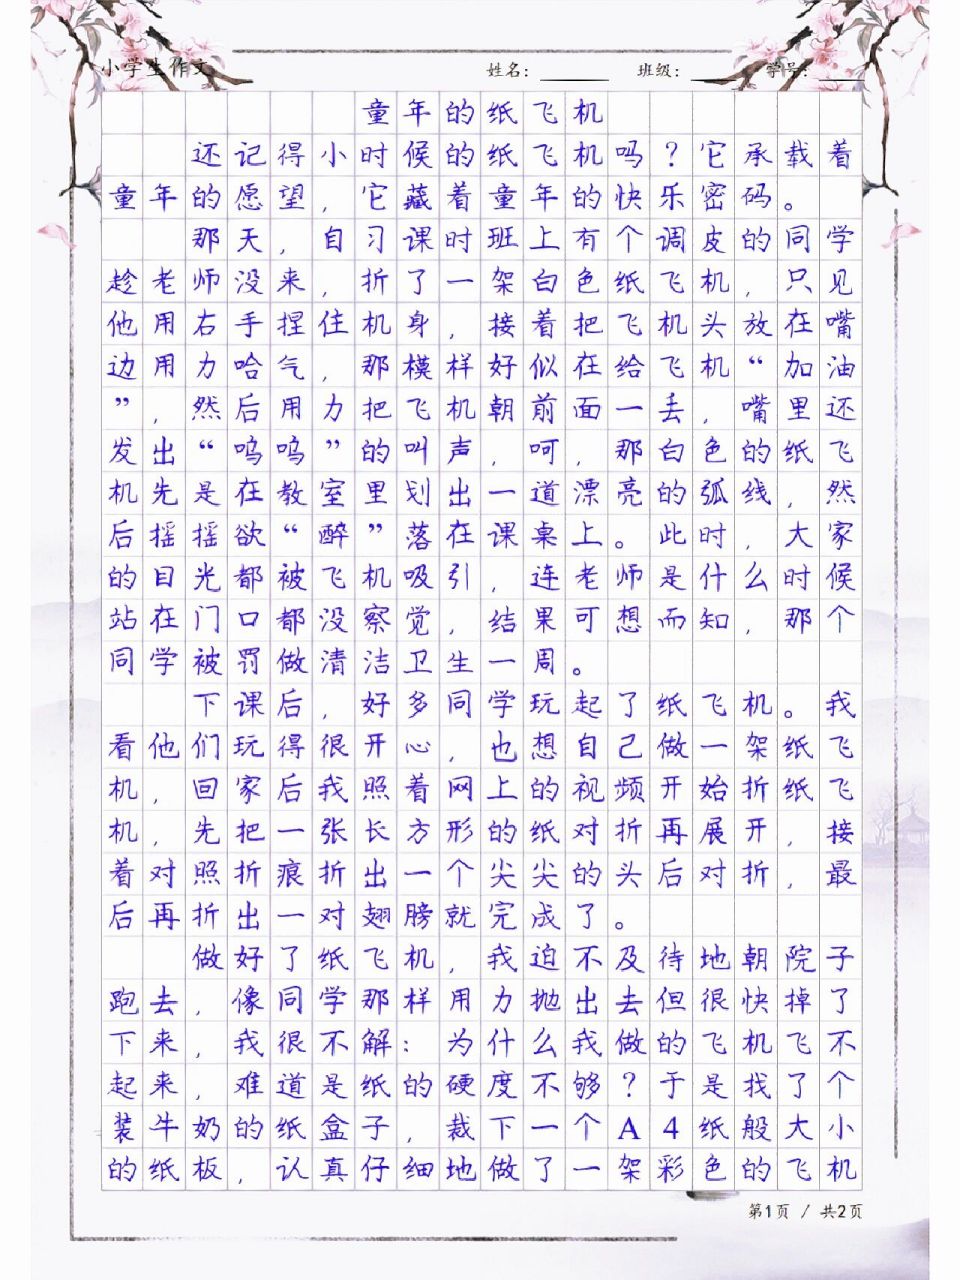 小学生作文 姓名: 班级: 学号:
童年的纸飞机
还记得小时候的纸飞机吗？它承载着
童年的愿望，它藏着童年的快乐密码。
那天，自习课时班上有个调皮的同学
趁老师没来，折了一架白色纸飞机，只见
他用右手捏住机身，接着把飞机头放在嘴
边用力哈气，那模样好似在给飞机“加油
”，然后用力把飞机朝前面一丢，嘴里还
发出“呜呜”的叫声，呵，那白色的纸飞
机先是在教室里划出一道漂亮的弧线，然
后摇摇欲“醉”落在课桌上。此时，大家
的目光都被飞机吸引，连老师是什么时候
站在门口都没察觉，结果可想而知，那个
同学被罚做清洁卫生一周。
下课后，好多同学玩起了纸飞机。我
看他们玩得很开心，也想自己做一架纸飞
机，回家后我照着网上的视频开始折纸飞
机，先把一张长方形的纸对折再展开，接
着对照折痕折出一个尖尖的头后对折，最
后再折出一对翅膀就完成了。
做好了纸飞机，我迫不及待地朝院子
跑去，像同学那样用力抛出去但很快掉了
下来，我很不解：为什么我做的飞机飞不
起来，难道是纸的硬度不够？于是找了个
装牛奶的纸盒子，裁下一个A4纸般大小
的纸板，认真仔细地做了一架彩色的飞机
第1页 / 共2页